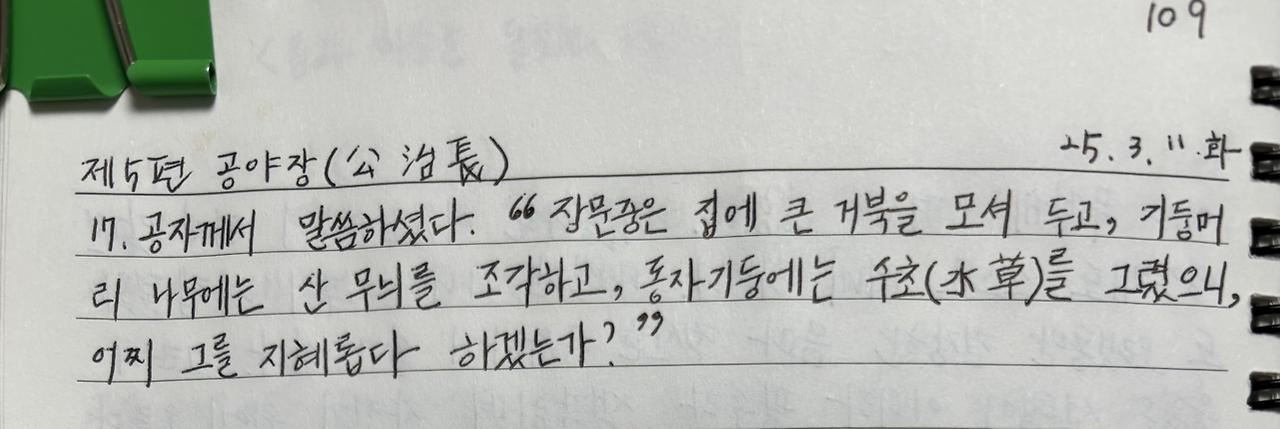 109
25. 3. 11. 화
제5편 공야장(公治長)
17. 공자께서 말씀하셨다. “장문중은 집에 큰 거북을 모셔 두고, 기둥머
리 나무에는 산 무늬를 조각하고, 동자기둥에는 수초(水草)를 그렸으니,
어찌 그를 지혜롭다 하겠는가?”